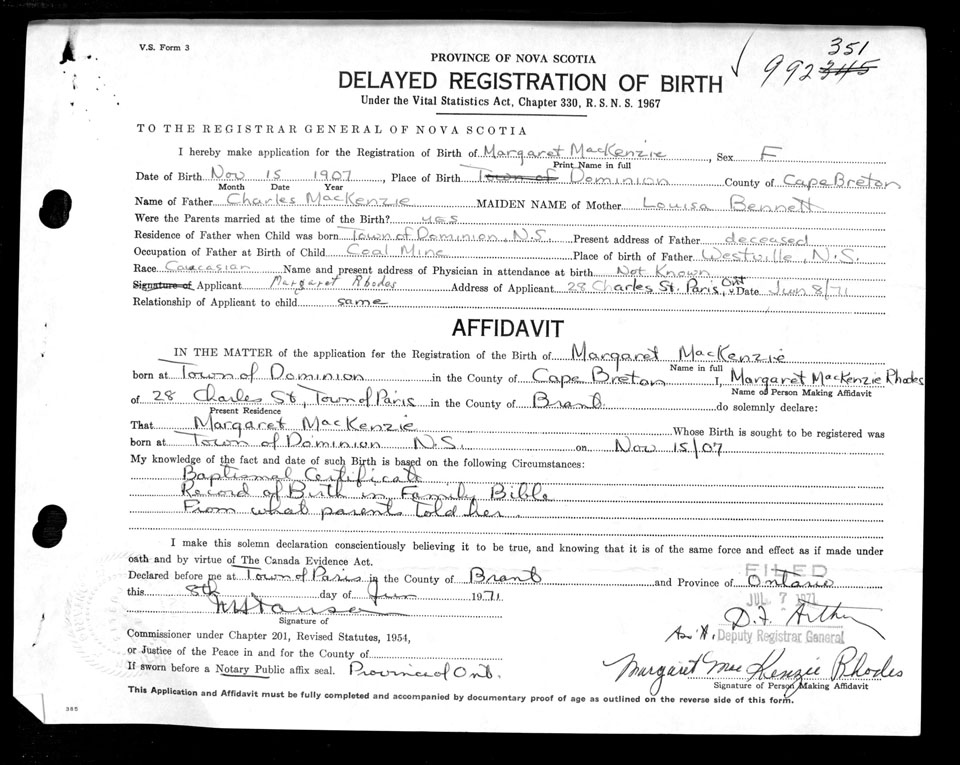 V.S. Form 3
351
992 345
PROVINCE OF NOVA SCOTIA
DELAYED REGISTRATION OF BIRTH
Under the Vital Statistics Act, Chapter 330, R. S. N. S. 1967
TO THE REGISTRAR GENERAL OF NOVA SCOTIA
I hereby make application for the Registration of Birth of Margaret MacKenzie, Sex F
Print Name in full
Date of Birth Nov 15 1907, Place of Birth Town of Dominion County of Cape Breton
Month Date Year
Name of Father Charles MacKenzie MAIDEN NAME of Mother Louisa Bennett
Were the Parents married at the time of the Birth? yes
Residence of Father when Child was born Town of Dominion, N.S. Present address of Father deceased
Occupation of Father at Birth of Child Coal Mine Place of birth of Father Westville, N.S.
Race Caucasian Name and present address of Physician in attendance at birth Not Known
Signature of Applicant Margaret Rhodes Address of Applicant 28 Charles St. Paris, Ont Date Jun 8/71
Relationship of Applicant to child same
AFFIDAVIT
IN THE MATTER of the application for the Registration of the Birth of Margaret MacKenzie
Name in full
born at Town of Dominion in the County of Cape Breton I, Margaret MacKenzie Rhodes
Name of Person Making Affidavit
of 28 Charles St, Town of Paris in the County of Brant do solemnly declare:
Present Residence
That Margaret MacKenzie Whose Birth is sought to be registered was
born at Town of Dominion N.S. on Nov 15/07
My knowledge of the fact and date of such Birth is based on the following Circumstances:
Baptismal Certificate
Record of Birth in Family Bible
From what parent told her.
I make this solemn declaration conscientiously believing it to be true, and knowing that it is of the same force and effect as if made under
oath and by virtue of The Canada Evidence Act.
FILED
Declared before me at Town of Paris in the County of Brant and Province of Ontario
JUL 7 1971
this 8th day of Jun 1971
Signature of
D.F. Arthur
Commissioner under Chapter 201, Revised Statutes, 1954,
Ass't. Deputy Registrar General
or Justice of the Peace in and for the County of
If sworn before a Notary Public affix seal. Province of Ont.
Margaret MacKenzie Rhodes
Signature of Person Making Affidavit
This Application and Affidavit must be fully completed and accompanied by documentary proof of age as outlined on the reverse side of this form.
385